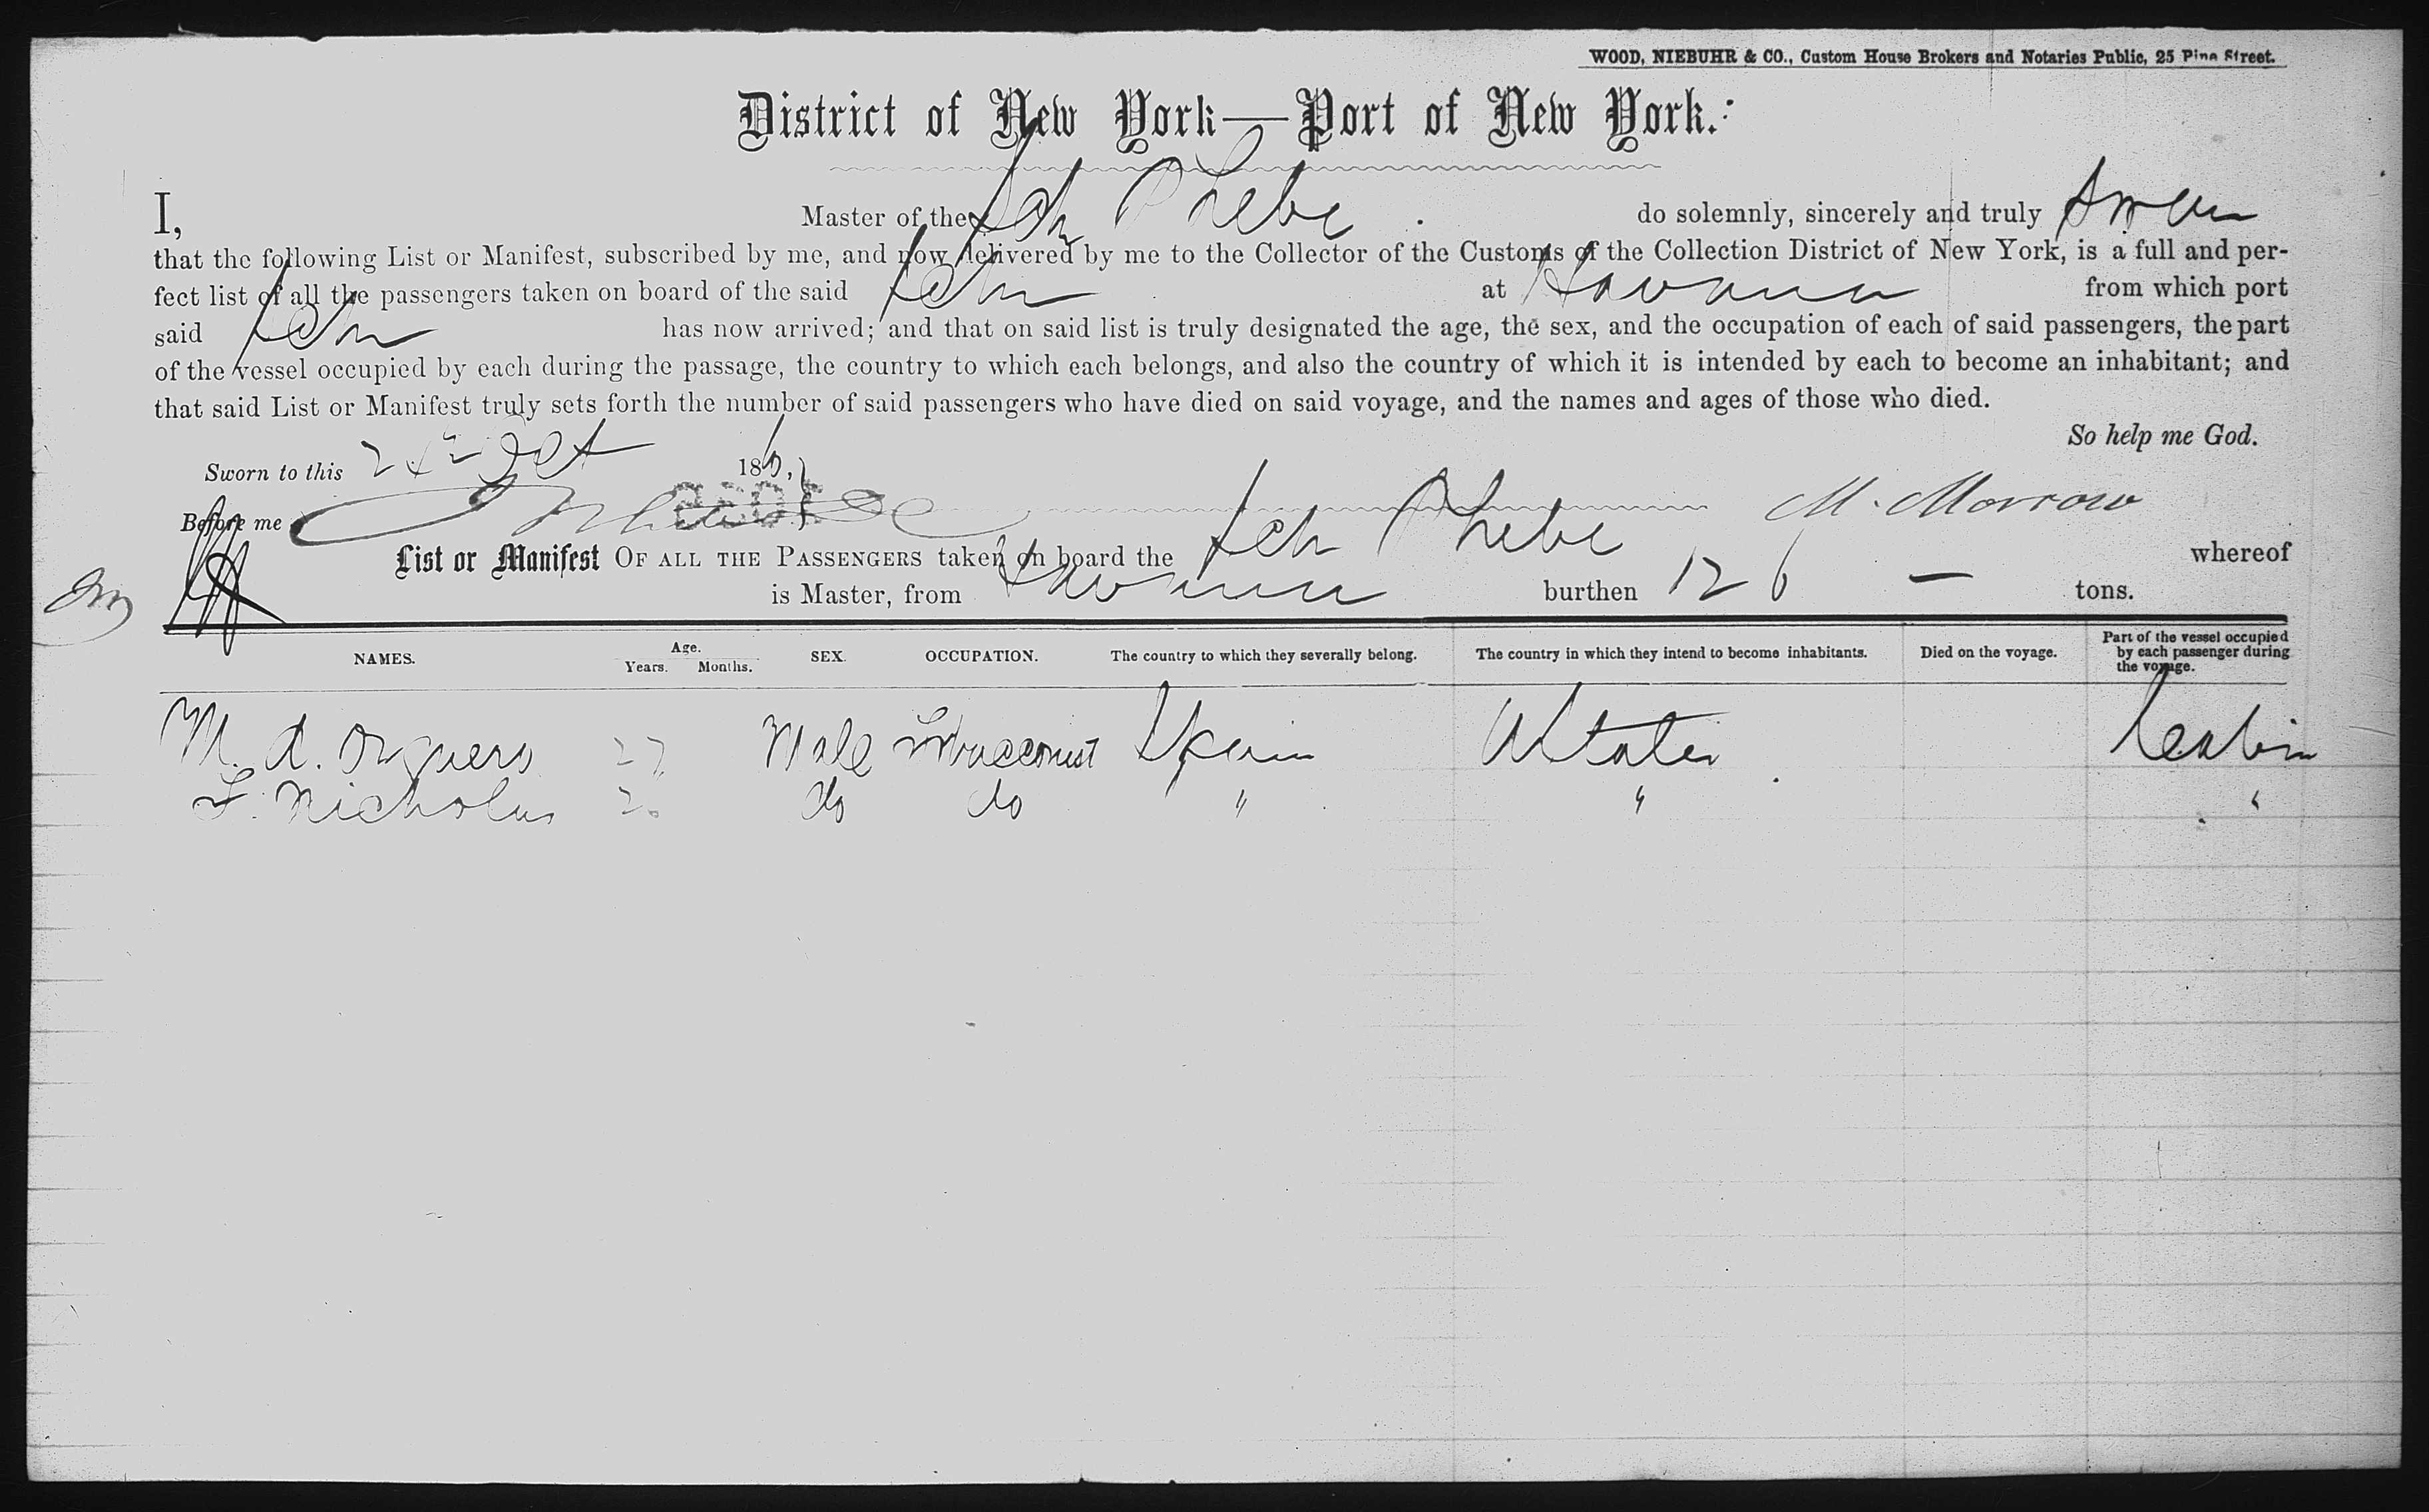 WOOD, NIEBUHR & CO., Custom House Brokers and Notaries Public, 25 Pine Street.
District of New York—Port of New York.
I, Master of the Sch Phebe do solemnly, sincerely and truly swear
that the following List or Manifest, subscribed by me, and now delivered by me to the Collector of the Customs of the Collection District of New York, is a full and per-
fect list of all the passengers taken on board of the said Sch at Havana from which port
said Sch has now arrived; and that on said list is truly designated the age, the sex, and the occupation of each of said passengers, the part
of the vessel occupied by each during the passage, the country to which each belongs, and also the country of which it is intended by each to become an inhabitant; and
that said List or Manifest truly sets forth the number of said passengers who have died on said voyage, and the names and ages of those who died.
So help me God.
Sworn to this Oct 186
Before me M. Morrow
List or Manifest OF ALL THE PASSENGERS taken on board the Sch Phebe whereof
is Master, from Havana burthen 126 — tons.
NAMES. Age. Years. Months. SEX. OCCUPATION. The country to which they severally belong. The country in which they intend to become inhabitants. Died on the voyage. Part of the vessel occupied by each passenger during the voyage.
M. A. 27 Male Tobacconist Spain U States Cabin
F. Nicholas do do " " "